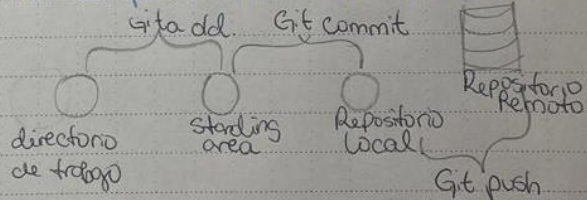 Git add. Git commit
directorio
de trabajo
Standing
area
Repositorio
Local
Repositorio
Remoto
Git push